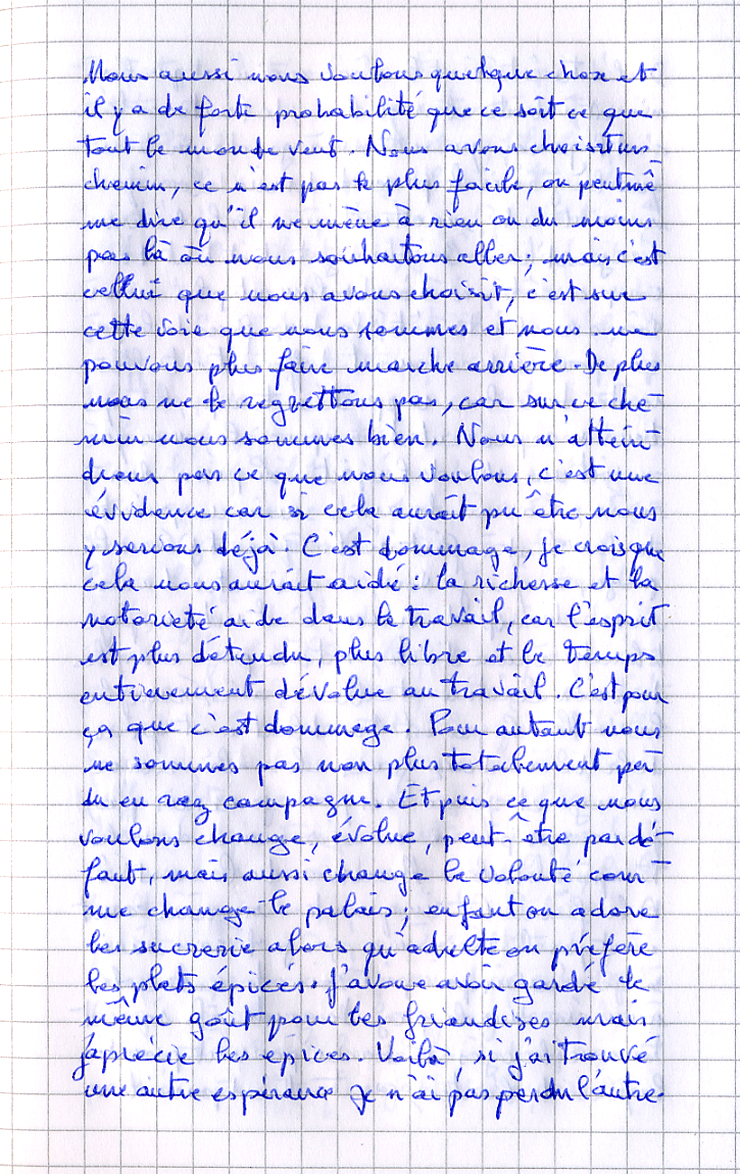 Nous aussi nous voulons quelque chose et
il y a de forte probabilité que ce soit ce que
tout le monde veut. Nous avons choisit un
chemin, ce n'est pas le plus facile, on peut mê-
me dire qu'il ne mène à rien ou du moins
pas là où nous souhaitons aller; mais c'est
cellui que nous avons choisit, c'est sur
cette voie que nous sommes et nous ne
pouvons plus faire marche arrière. De plus
nous ne le regrettons pas, car sur ce che-
min nous sommes bien. Nous n'attein-
drons pas ce que nous voulons, c'est une
évidence car si cela aurait pu être nous
y serions déjà. C'est dommage, je crois que
cela nous aurait aidé : la richesse et la
notorieté aide dans le travail, car l'esprit
est plus détendu, plus libre et le temps
entierement dévolue au travail. C'est pour
ça que c'est dommage. Pour autant nous
ne sommes pas non plus totalement per-
du en raz campagne. Et puis ce que nous
voulons change, évolue, peut-être par dé-
faut, mais aussi change la volonté com-
me change le palais; enfant on adore
les sucrerie alors qu'adulte on préfère
les plats épicés. J'avoue avoir gardé le
même goût pour les friandises mais
j'aprécie les épices. Voilà, si j'ai trouvé
une autre espérance je n'ai pas perdu l'autre.